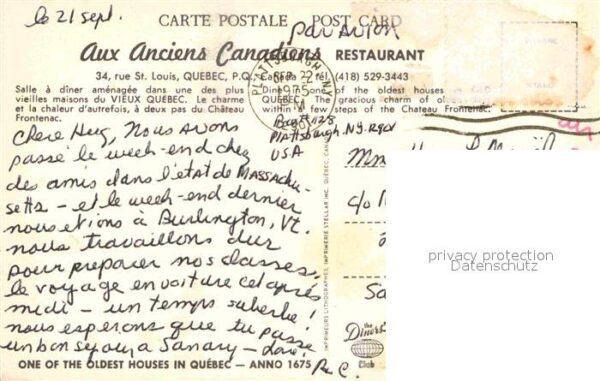 le 21 sept.
CARTE POSTALE POST CARD
par avion
Aux Anciens Canadiens RESTAURANT
34, rue St. Louis, QUEBEC, P.Q., Canada tél. (418) 529-3443
Salle à dîner aménagée dans une des plus
vieilles maisons du VIEUX QUÉBEC. Le charme
et la chaleur d'autrefois, à deux pas du Château
Frontenac.
Dine in one of the oldest houses in OLD
QUEBEC. The gracious charm of
within a few steps of the Chateau Frontenac.
PLATTSBURGH, NY
SEP 22
PM
1975
Plattsburgh, N.Y.
USA
Chère Meg, Nous avons
passé le week-end chez
des amis dans l'état de Massachu-
setts - et le week-end dernier
nous étions à Burlington, Vt.
nous travaillons dur
pour préparer nos classes.
le voyage en voiture cet après
midi - un temps superbe!
nous espérons que tu passe
un bon séjour à Sanary - Love
P. C.
Mme
c/o
Sa
IMPRIMEURS LITHOGRAPHES, IMPRIMERIE STELLAR INC. QUEBEC, CANADA
privacy protection
Datenschutz
the
Diners
Club
ONE OF THE OLDEST HOUSES IN QUÉBEC — ANNO 1675